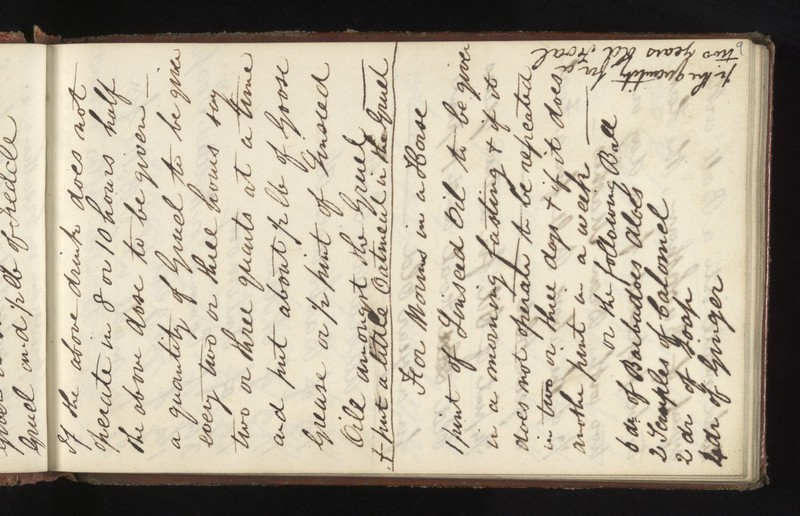 Gruel and ½ lb of treacle
If the above drink does not
operate in 8 or 10 hours half
the above dose to be given —
a quantity of Gruel to be give
every two or three hours say
two or three quarts at a time
and put about ½ lb of Goose
Grease or ½ pint of Linseed
Oil amongst the Gruel —
+ put a little Oatmeal in the Gruel
For Worms in a Horse
1 pint of Linseed Oil to be given
in a morning fasting + if it
does not operate to be repeated
in two or three days + if it does
another pint in a week —
or the following Ball
6 dr of Barbadoes Aloes
2 Scruples of Calomel
2 dr of Soap
4 dr of Ginger
½ the quantity for a
two years old Foal
6